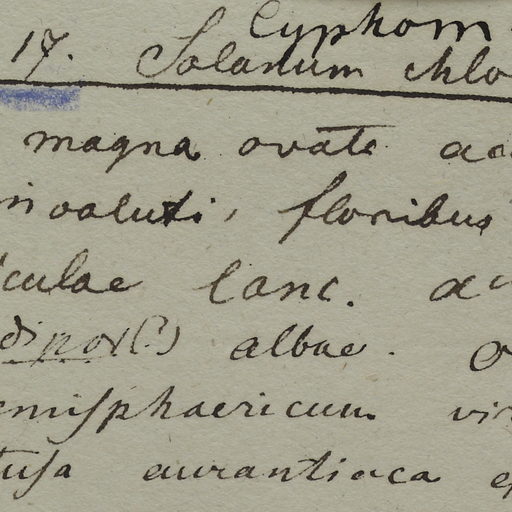 Cyphom
17. Solanum chlo
magna ovate ac
involuti, floribus
iculae lanc. ac
dipor(?) albae. O
emisphaericum vir
tusa aurantiaca e